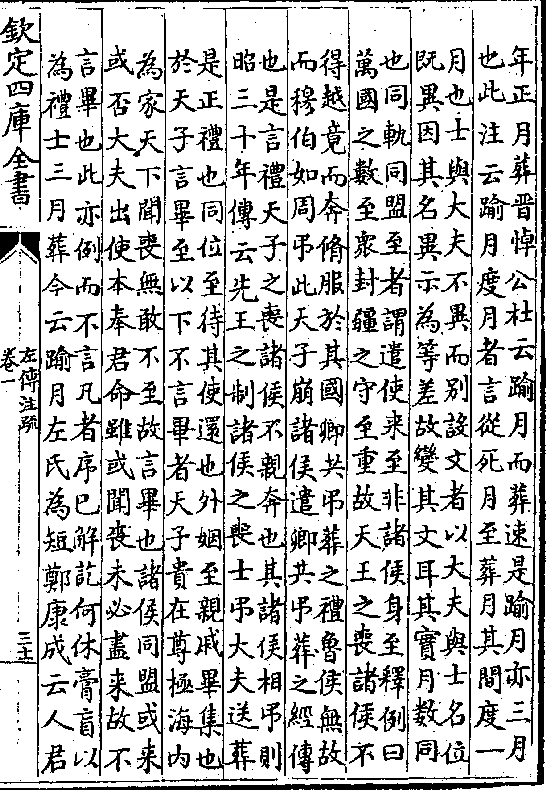 年正月葬晋悼公杜云踰月而葬速是踰月亦三月
也此注云踰月度月者言從死月至葬月其間度一
月也士與大夫不異而别設文者以大夫與士名位
既異因其名異示為等差故變其文耳其實月數同
也同軌同盟至者謂遣使来至非諸侯身至釋例曰
萬國之數至衆封疆之守至重故天王之喪諸侯不
得越竟而奔脩服於其國卿共弔葬之禮魯侯無故
而穆伯如周弔此天子崩諸侯遣卿共弔葬之經傳
也是言禮天子之喪諸侯不親奔也其諸侯相弔則
昭三十年傳云先王之制諸侯之喪士弔大夫送葬
是正禮也同位至待其使還也外姻至親戚畢集也
於天子言畢至以下不言畢者天子貴在尊極海内
為家天下聞喪無敢不至故言畢也諸侯同盟或来
或否大夫出使本奉君命雖或聞喪未必盡来故不
言畢也此亦例而不言凡者序已解訖何休膏盲以
為禮士三月葬今云踰月左氏為短鄭康成云人君
欽定四庫全書
左傳注疏
卷一
三十